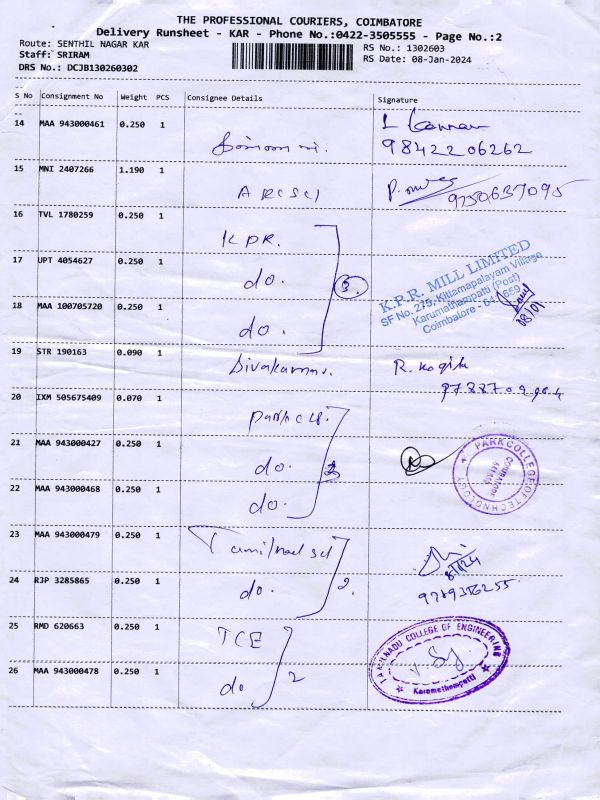 THE PROFESSIONAL COURIERS, COIMBATORE
Delivery Runsheet - KAR - Phone No.:0422-3505555 - Page No.:2
Route: SENTHIL NAGAR KAR
RS No.: 1302603
Staff: SRIRAM
RS Date: 08-Jan-2024
DRS No.: DCJB130260302
S No Consignment No Weight PCS Consignee Details Signature
14 MAA 943000461 0.250 1
9842206262
15 MNI 2407266 1.190 1
9750637095
16 TVL 1780259 0.250 1 KPR.
17 UPT 4054627 0.250 1 do. 3.
K.P.R. MILL LIMITED
SF No. 275, Kittampalayam Village
Karumathampatti (Post)
Coimbatore - 641 659
08/01
18 MAA 100705720 0.250 1 do.
19 STR 190163 0.090 1 Divakaran. R.
20 IXM 505675409 0.070 1
21 MAA 943000427 0.250 1 do. 3
PARK COLLEGE OF TECHNOLOGY
COIMBATORE
641 659
22 MAA 943000468 0.250 1 do.
23 MAA 943000479 0.250 1 Tamilnad
8/1/24
24 RJP 3285865 0.250 1 do. 2.
25 RMD 620663 0.250 1 TCE
TAMILNADU COLLEGE OF ENGINEERING
Karumathampatti
26 MAA 943000478 0.250 1 do 2